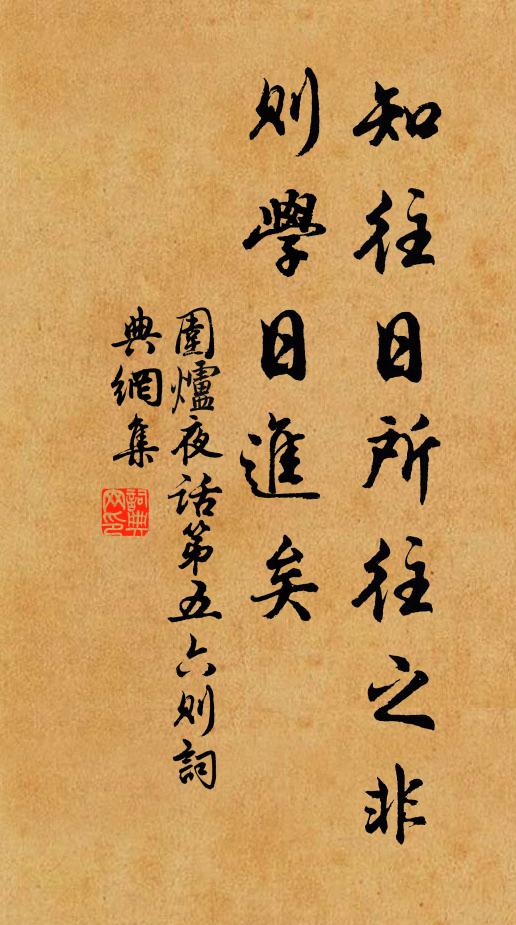 知往日所往之非
則學日進矣
圍爐夜话第五六則詞
典網集
詞典
网印